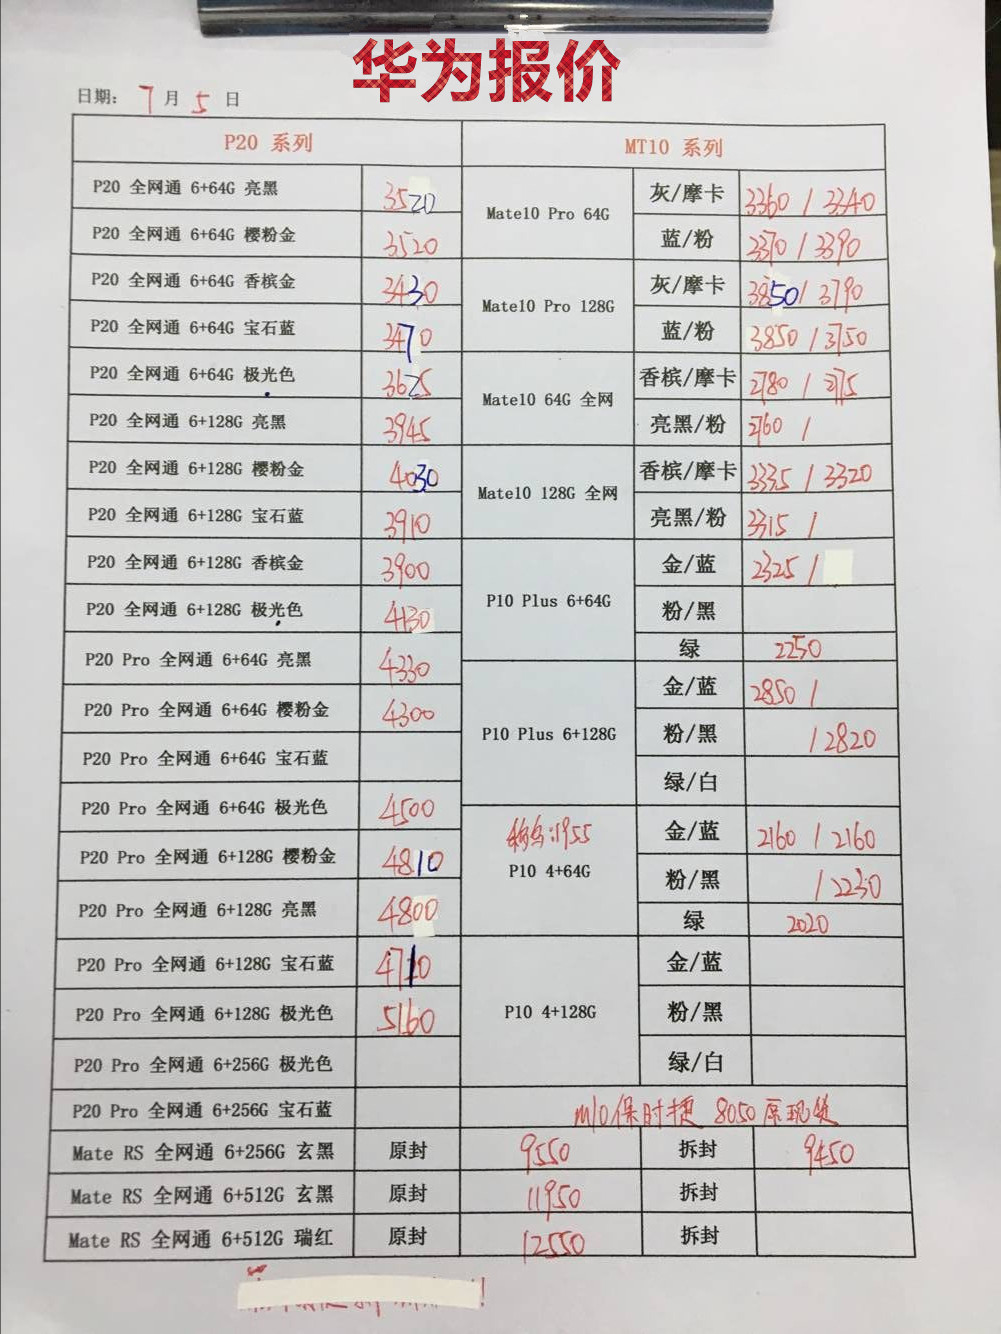 华为报价
日期: 7 月 5 日
P20 系列 MT10 系列
P20 全网通 6+64G 亮黑 3520 Mate10 Pro 64G 灰/摩卡 3360 / 3340
P20 全网通 6+64G 樱粉金 3520 蓝/粉 3370 / 3390
P20 全网通 6+64G 香槟金 3430 Mate10 Pro 128G 灰/摩卡 3850/ 3790
P20 全网通 6+64G 宝石蓝 3470 蓝/粉 3850 / 3750
P20 全网通 6+64G 极光色 3625 Mate10 64G 全网 香槟/摩卡 2780 / 275
P20 全网通 6+128G 亮黑 3945 亮黑/粉 2760 /
P20 全网通 6+128G 樱粉金 4030 Mate10 128G 全网 香槟/摩卡 3335 / 3320
P20 全网通 6+128G 宝石蓝 3910 亮黑/粉 3315 /
P20 全网通 6+128G 香槟金 3900 P10 Plus 6+64G 金/蓝 2325 /
P20 全网通 6+128G 极光色 4130 粉/黑
P20 Pro 全网通 6+64G 亮黑 4330 绿 2250
P20 Pro 全网通 6+64G 樱粉金 4300 P10 Plus 6+128G 金/蓝 2850 /
粉/黑 / 2820
P20 Pro 全网通 6+64G 宝石蓝 绿/白
P20 Pro 全网通 6+64G 极光色 4500 1955 金/蓝 2160 / 2160
P20 Pro 全网通 6+128G 樱粉金 4810 P10 4+64G 粉/黑 / 2230
P20 Pro 全网通 6+128G 亮黑 4800 绿 2020
P20 Pro 全网通 6+128G 宝石蓝 4710 金/蓝
P20 Pro 全网通 6+128G 极光色 5160 P10 4+128G 粉/黑
P20 Pro 全网通 6+256G 极光色 绿/白
P20 Pro 全网通 6+256G 宝石蓝 M10保时捷 8050原现货
Mate RS 全网通 6+256G 玄黑 原封 9550 拆封 9450
Mate RS 全网通 6+512G 玄黑 原封 11950 拆封
Mate RS 全网通 6+512G 瑞红 原封 12550 拆封